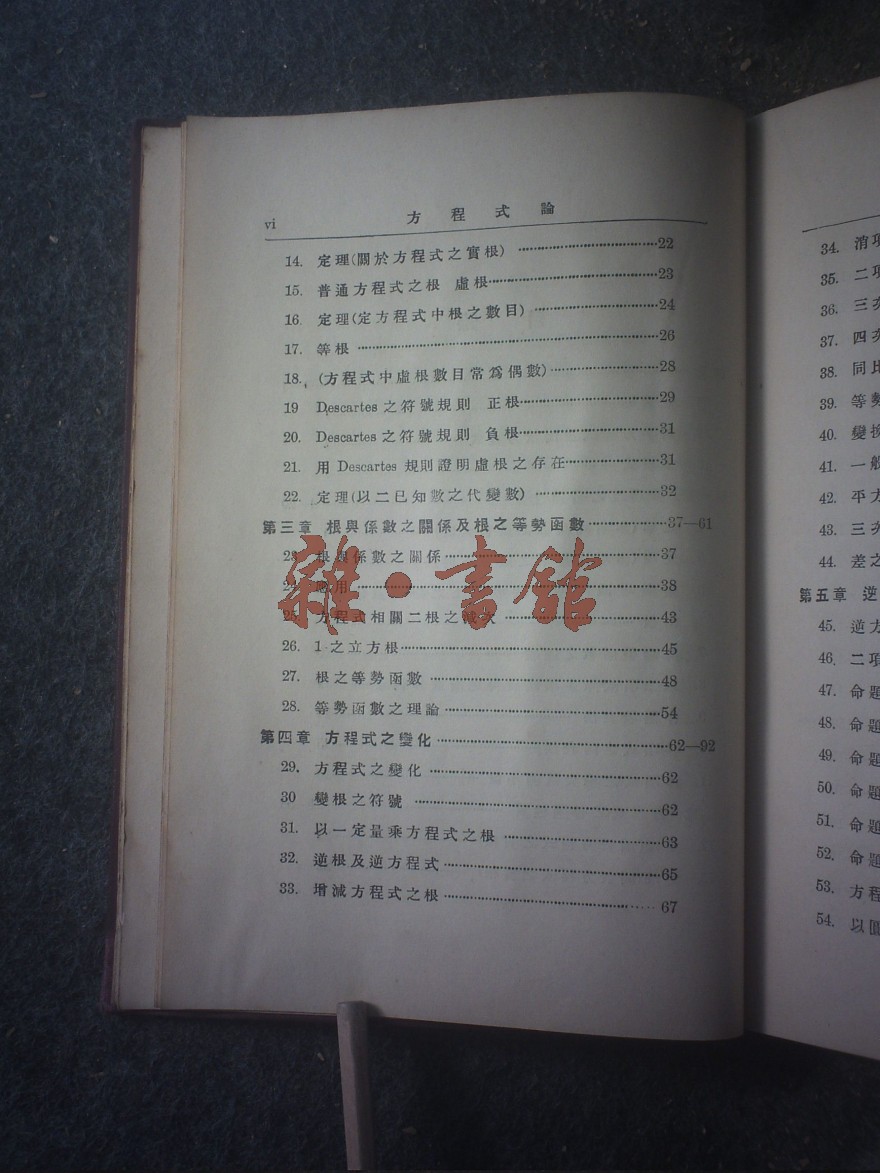 vi 方程式論
14. 定理(關於方程式之實根) ……22
15. 普通方程式之根 虛根……23
16. 定理(定方程式中根之數目) ……24
17. 等根 ……26
18. (方程式中虛根數目常爲偶數)……28
19 Descartes 之符號規則 正根……29
20. Descartes 之符號規則 負根……31
21. 用 Descartes 規則證明虛根之存在……31
22. 定理(以二已知數之代變數) ……32
第三章 根與係數之關係及根之等勢函數……37—61
23. 根與係數之關係……37
24. 應用……38
25. 方程式相關二根之減次 ……43
26. 1之立方根……45
27. 根之等勢函數 ……48
28. 等勢函數之理論……54
第四章 方程式之變化……62—92
29. 方程式之變化 ……62
30 變根之符號 ……62
31. 以一定量乘方程式之根 ……63
32. 逆根及逆方程式……65
33. 增減方程式之根……67
雜·書館
34. 消項
35. 二項
36. 三次
37. 四次
38. 同比
39. 等勢
40. 變換
41. 一般
42. 平方
43. 三次
44. 差之
第五章 逆
45. 逆方
46. 二項
47. 命題
48. 命題
49. 命題
50. 命題
51. 命題
52. 命題
53. 方程
54. 以圓